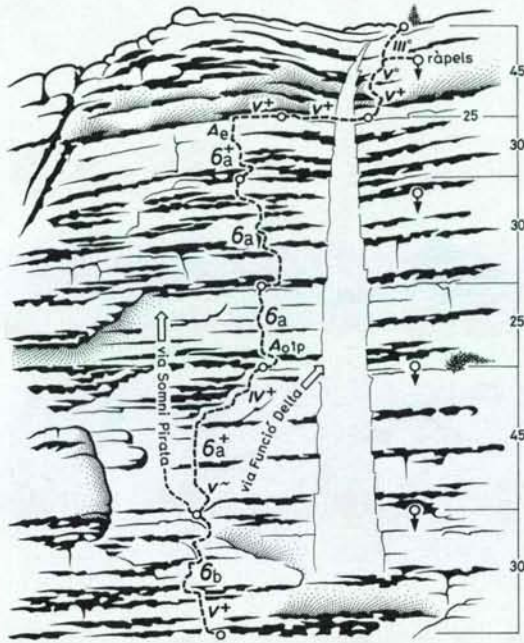 III°
ràpels
45
V°
V+
V+
V+
25
Ae
30
6a+
6a
30
6a
25
Ao1p
via Somni Pirata
IV+
via Funció Delta
6a+
45
V-
6b
30
V+